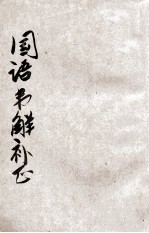 国语韦解补正